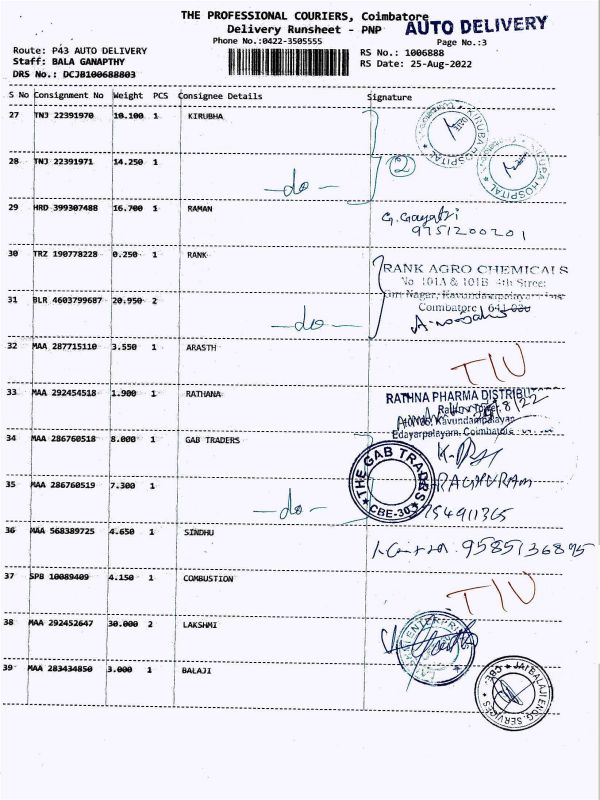 THE PROFESSIONAL COURIERS, Coimbatore
AUTO DELIVERY
Delivery Runsheet - PNP
Phone No.:0422-3505555
Page No.:3
Route: P43 AUTO DELIVERY
RS No.: 1006888
Staff: BALA GANAPTHY
RS Date: 25-Aug-2022
DRS No.: DCJB100688803
S No Consignment No Weight PCS Consignee Details Signature
27 TNJ 22391970 10.100 1 KIRUBHA
KIRUBA HOSPITAL
28 TNJ 22391971 14.250 1
2
-do-
KIRUBA HOSPITAL
29 HRD 399307488 16.700 1 RAMAN
G. Gayatri
9751200201
30 TRZ 190778228 0.250 1 RANK
RANK AGRO CHEMICALS
No 101A & 101B 4th Street
31 BLR 4603799687 20.950 2
Nagar, Kavundampalayam
Coimbatore 641 030
-do-
32 MAA 287715110 3.550 1 ARASTH
TIU
33 MAA 292454518 1.900 1 RATHANA
RATHNA PHARMA DISTRIBU
Kavundampalayan
Edayarpalayam, Coimbatore
34 MAA 286760518 8.000 1 GAB TRADERS
THE GAB TRADERS
CBE-30
35 MAA 286760519 7.300 1
RAGHURAM
-do-
754911365
36 MAA 568389725 4.650 1 SINDHU
9585136895
37 SPB 10089409 4.150 1 COMBUSTION
TIU
38 MAA 292452647 30.000 2 LAKSHMI
39 MAA 283434850 3.000 1 BALAJI
JAI BALAJI ENGG. SERVICES
CBE.